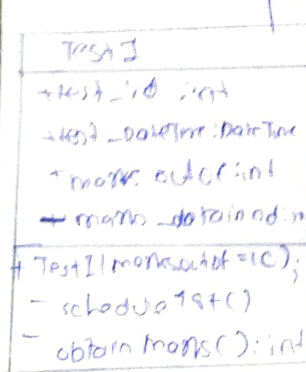 Test I
+test_id :int
+test_DateTime :Date Time
marks outof :int
marks_obtained :in
+ TestI(marksoutof =10);
- schedule Tst()
- obtain marks(): int